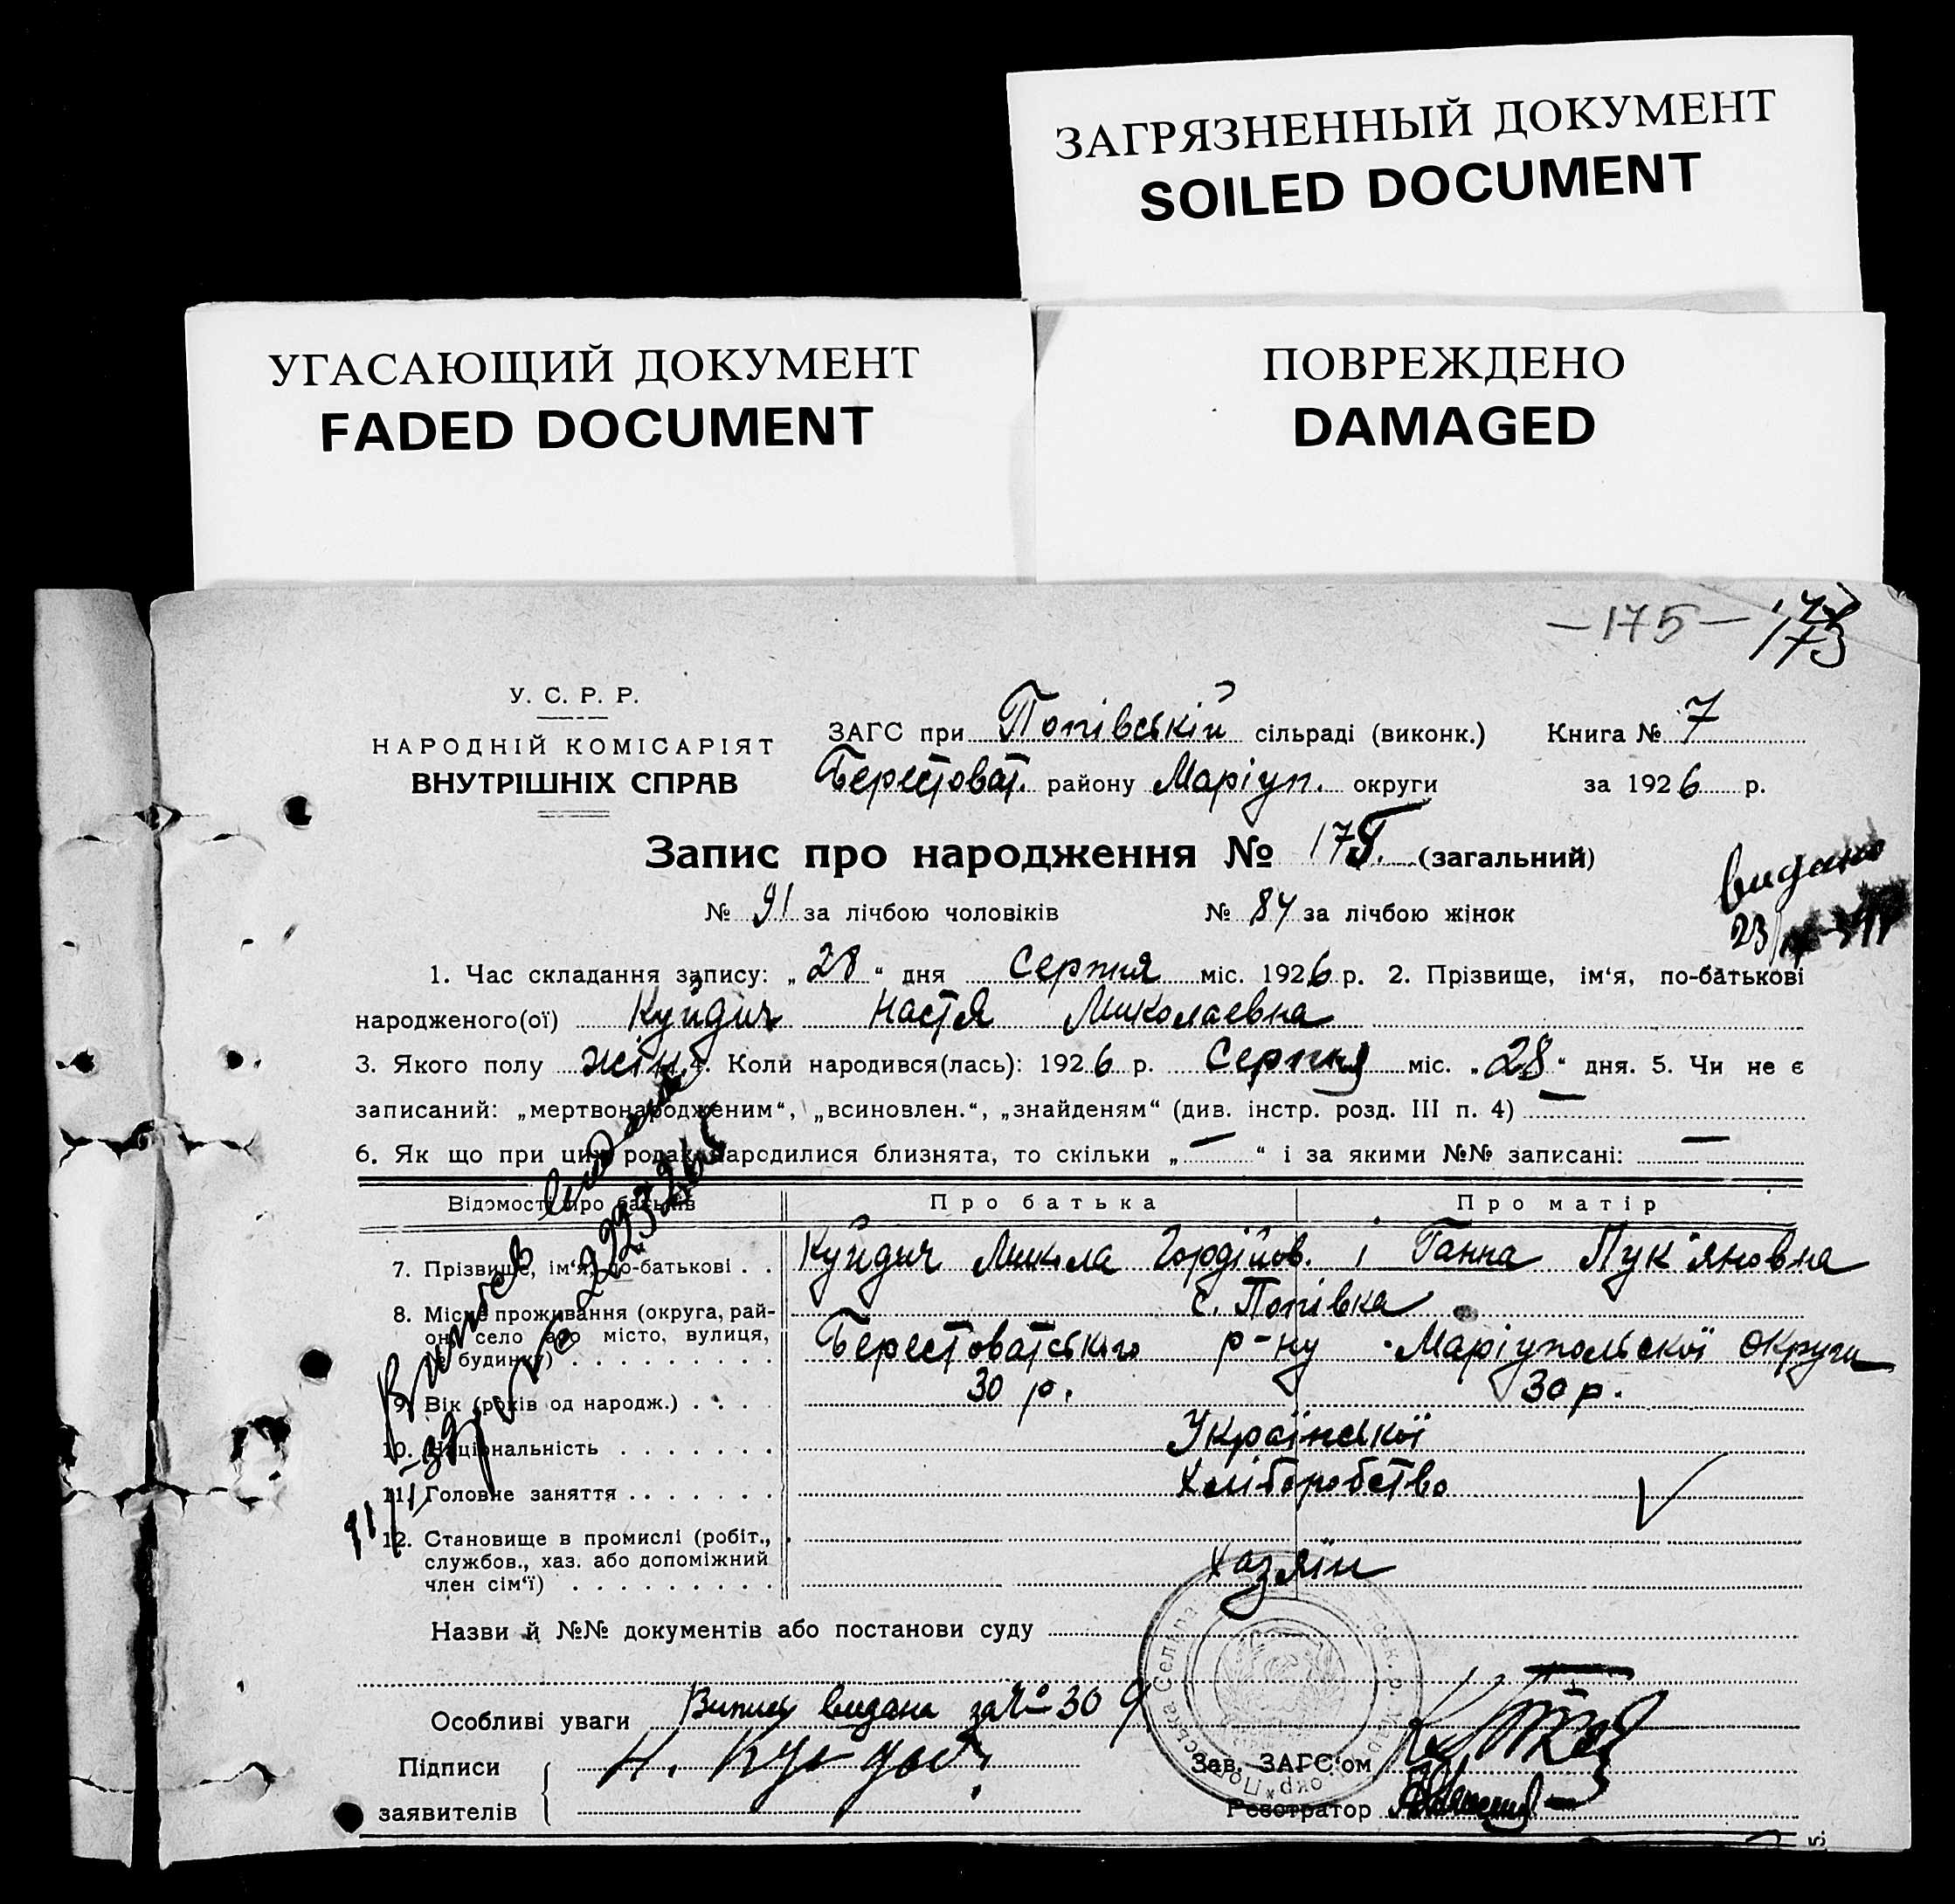 ЗАГРЯЗНЕННЫЙ ДОКУМЕНТ
SOILED DOCUMENT
УГАСАЮЩИЙ ДОКУМЕНТ
FADED DOCUMENT
ПОВРЕЖДЕНО
DAMAGED
—175— 173
У. С. Р. Р.
НАРОДНІЙ КОМІСАРІЯТ
ВНУТРІШНІХ СПРАВ
ЗАГС при Попівській сільраді (виконк.) Книга № 7
Берестоват. району Маріуп. округи за 1926 р.
Запис про народження № 175. (загальний)
№ 91 за лічбою чоловіків № 84 за лічбою жінок
видано
23
1. Час складання запису: „28“ дня Серпня міс. 1926 р. 2. Прізвище, ім‘я, по-батькові
народженого(ої) Куйдич Настя Миколаевна
3. Якого полу жін 4. Коли народився(лась): 1926 р. Серпня міс. „28“ дня. 5. Чи не є
записаний: „мертвонародженим“, „всиновлен.“, „знайденям“ (див. інстр. розд. III п. 4) —
6. Як що при цих родах народилися близнята, то скільки „—“ і за якими №№ записані: —
Відомості про батьків Про батька Про матір
7. Прізвище, ім‘я, по-батькові . . Куйдич Микола Гордійов. і Ганна Лук‘яновна
8. Місце проживання (округа, район, село або місто, вулиця, № будинку) с. Попівка
Берестоватського р-ну Маріупольської Округи
9. Вік (років од народж.) 30 р. 30 р.
10. Національність Української
11. Головне заняття Хліборобство
12. Становище в промислі (робіт.,
службов., хаз. або допоміжний
член сім‘ї) Хазяїн
Назви й №№ документів або постанови суду
Особливі уваги Випись видана за № 309
Підписи
заявителів
Зав. ЗАГС‘ом
Реєстратор